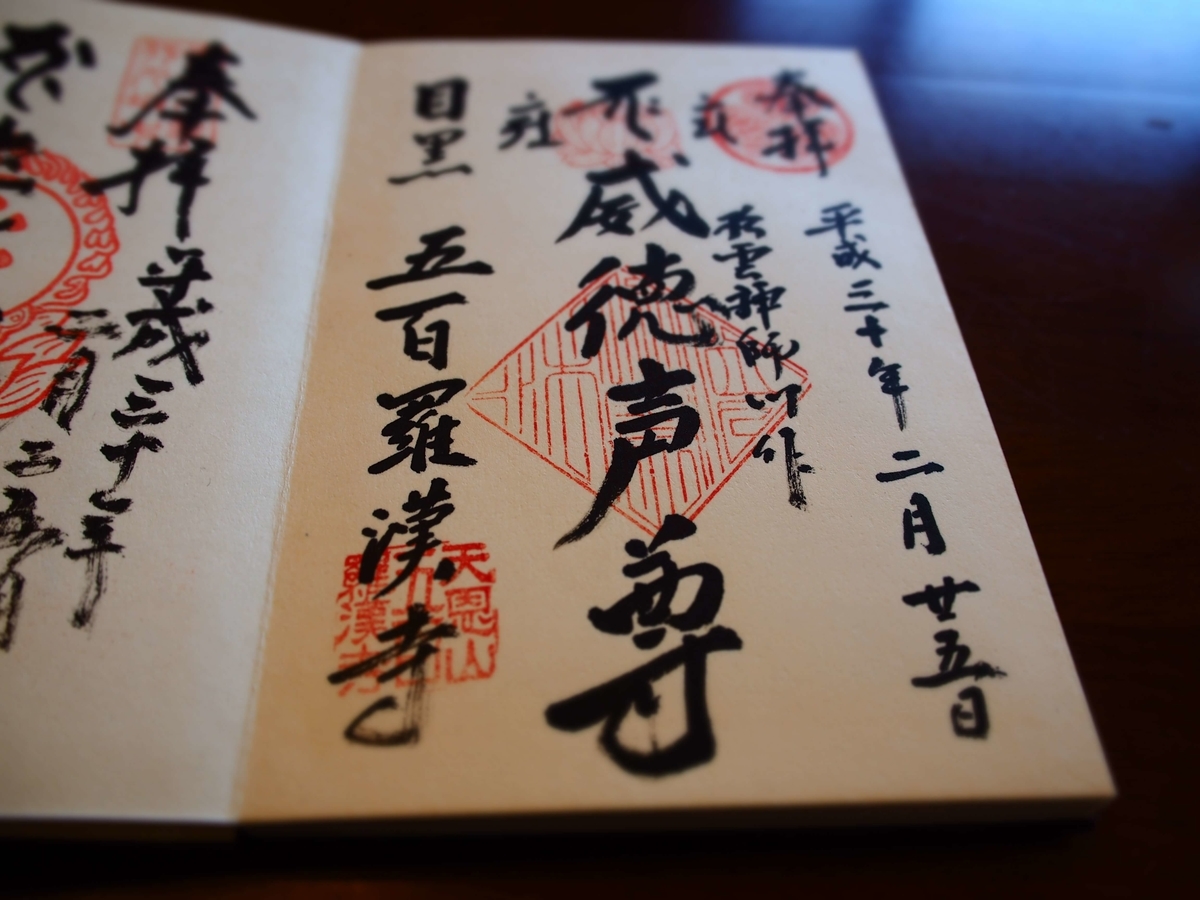 奉拝
平成三十年二月廿五日
松雲禅師御作
威徳声尊
目黒 五百羅漢寺
天恩山
五百
羅漢寺
奉拝 平成三十年
二月二五日